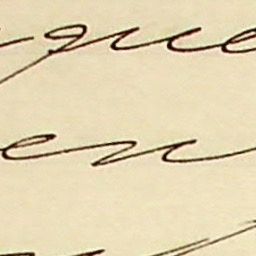 que
en